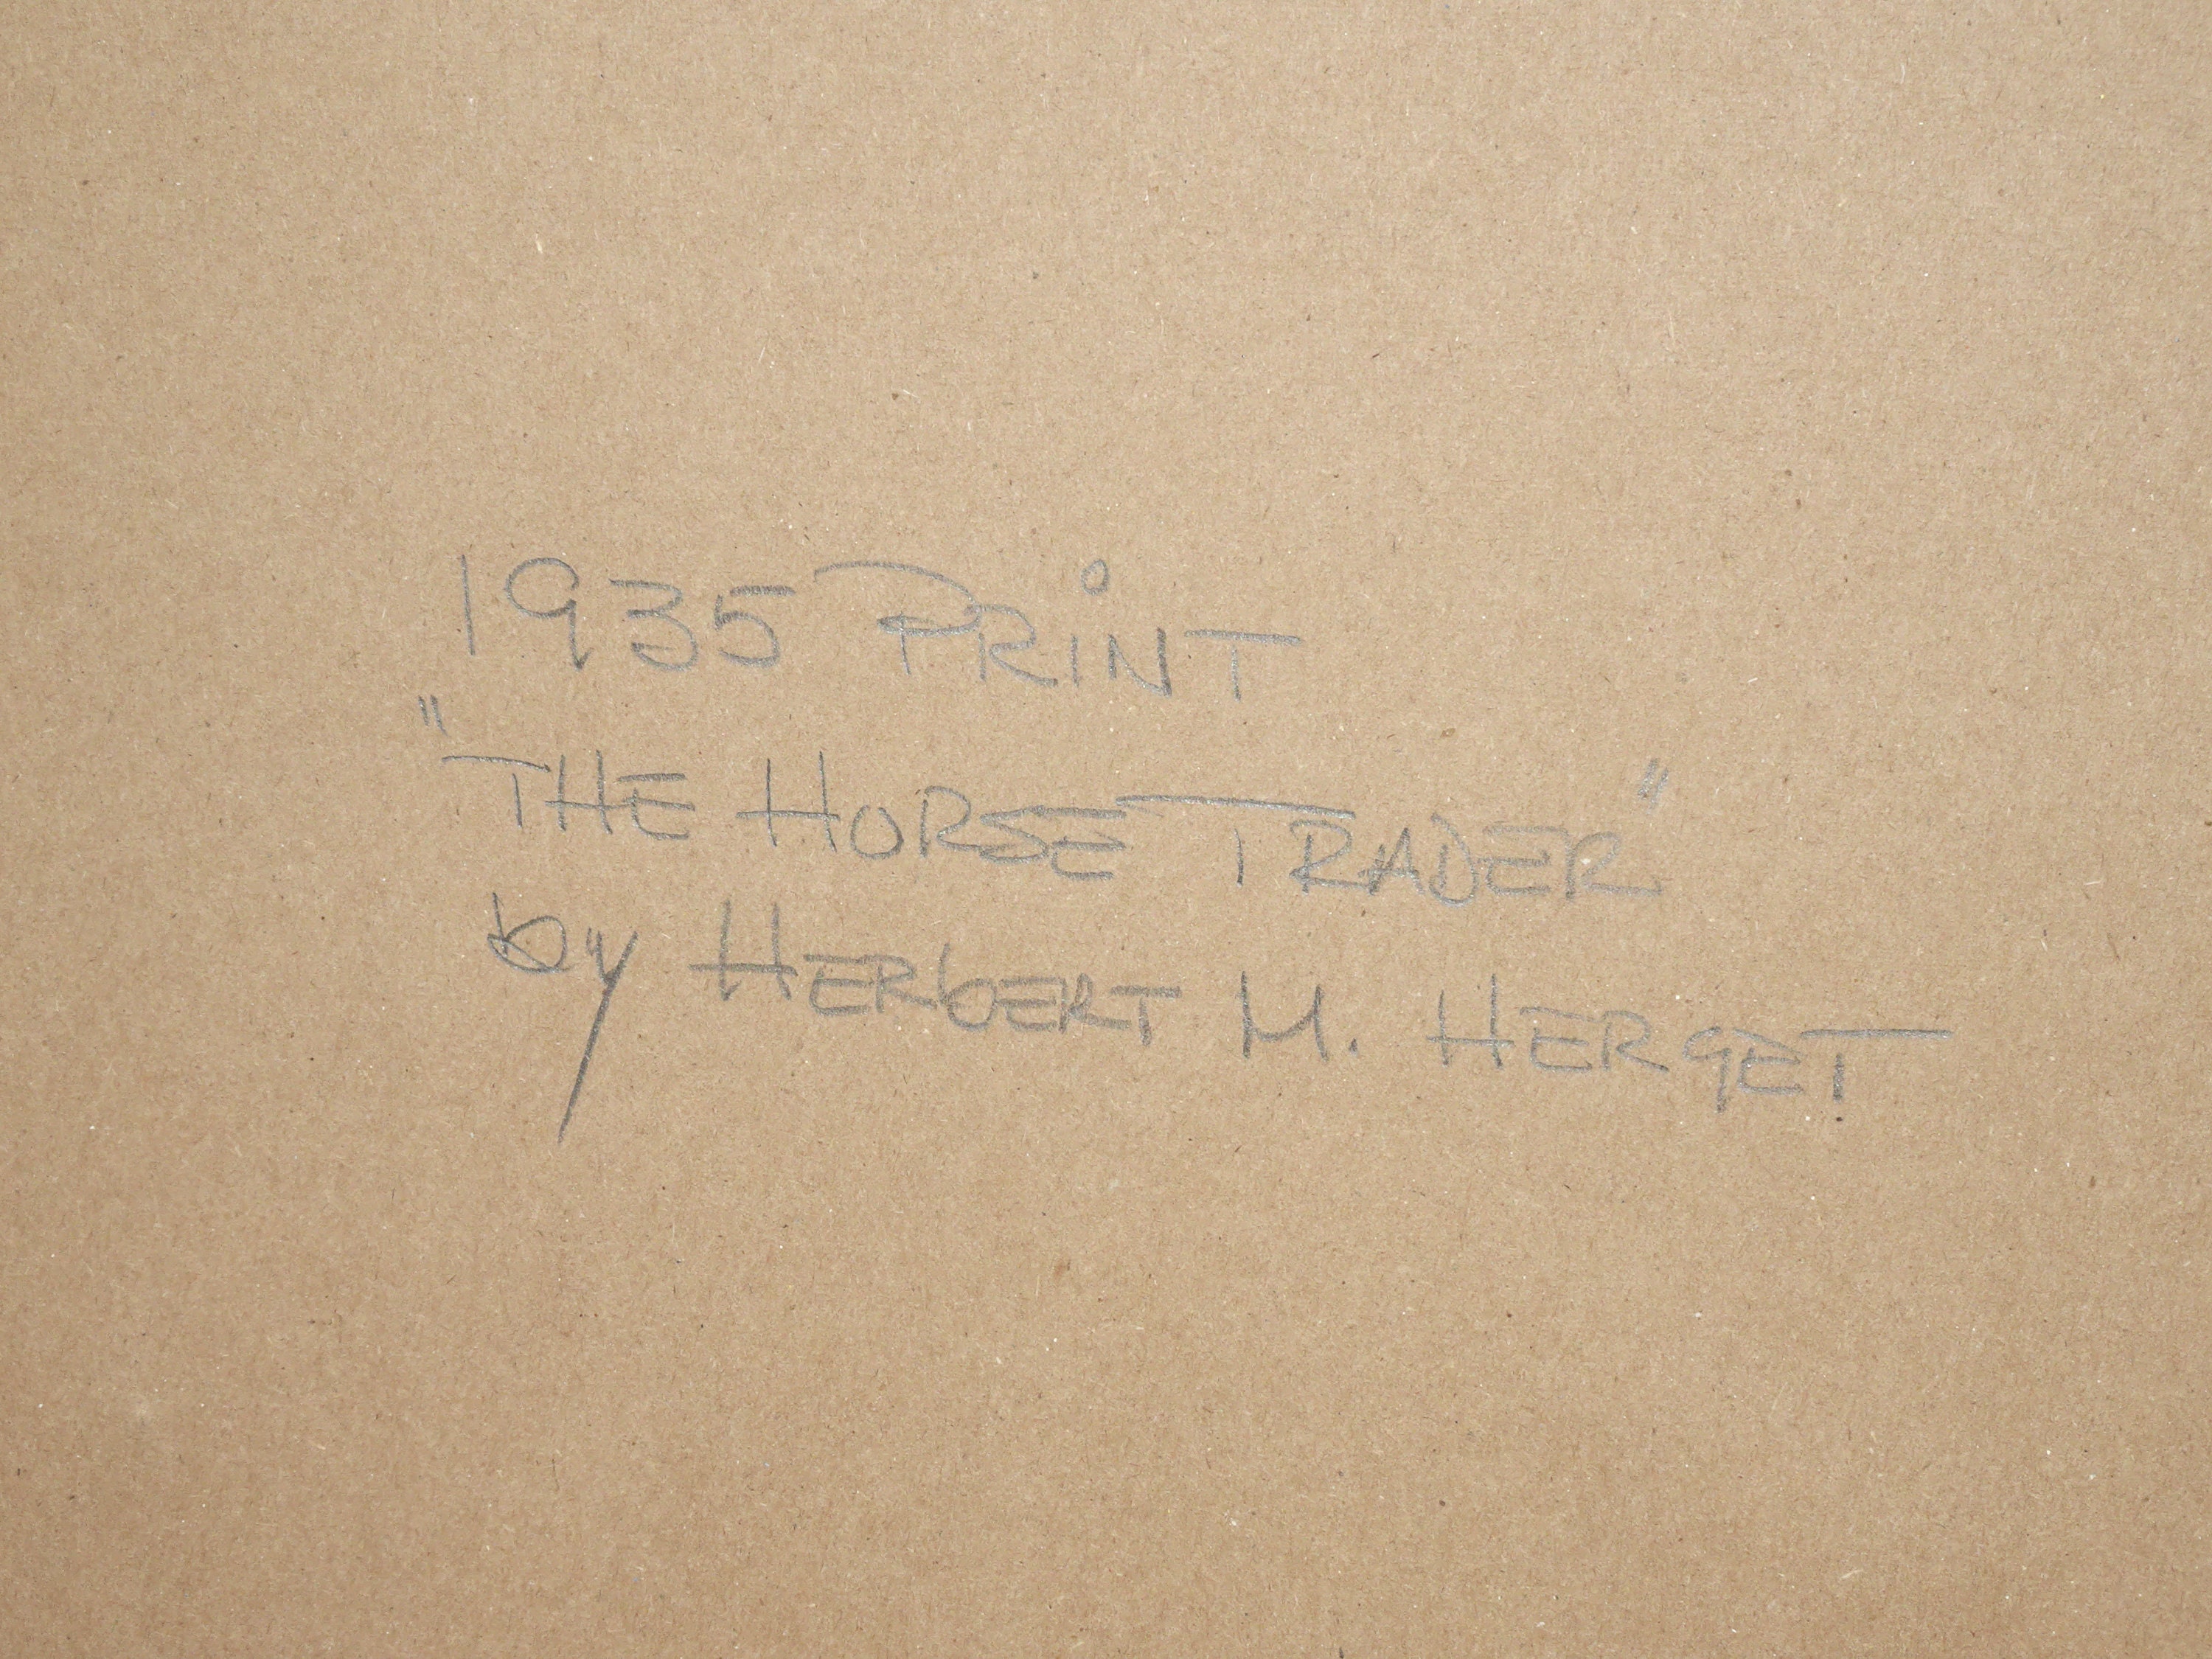 1935 PRiNT
"THE HORSE TRADER"
by HERbERT M. HERGET